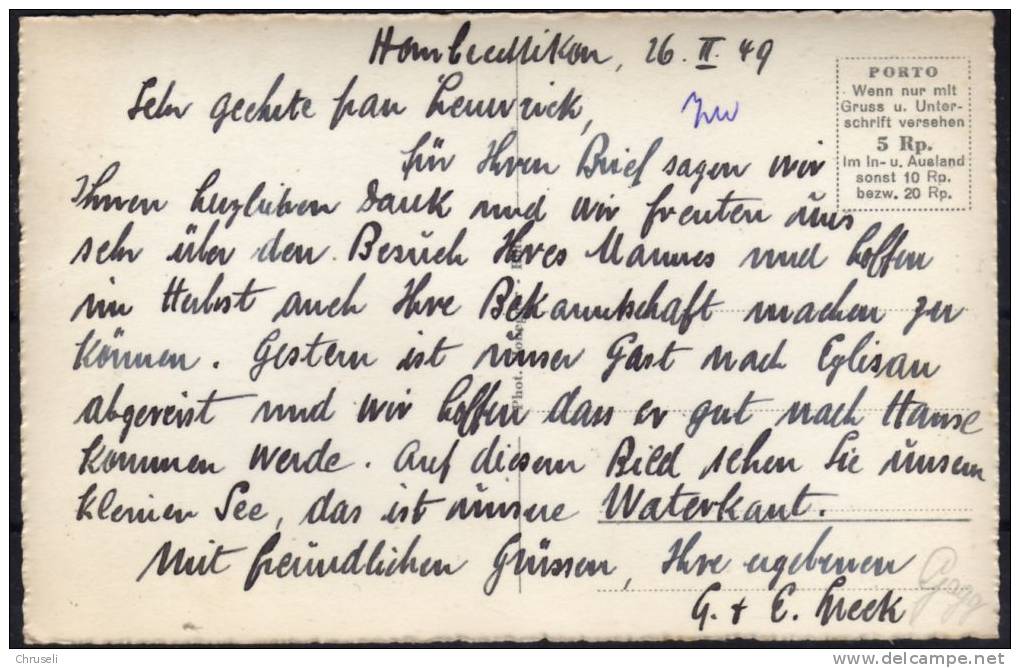 Hombrechtikon, 26. II. 49
Sehr geehrte Frau
für Ihren Brief sagen wir
Ihnen herzlichen Dank und wir freuten uns
sehr über den Besuch Ihres Mannes und hoffen
im Herbst auch Ihre Bekanntschaft machen zu
können. Gestern ist unser Gast nach Eglisau
abgereist und wir hoffen dass er gut nach Hause
kommen werde. Auf diesem Bild sehen Sie unsern
kleinen See, das ist unsere Waterkant.
Mit freundlichen Grüssen, Ihre ergebenen
G. + E.
PORTO
Wenn nur mit
Gruss u. Unter-
schrift versehen
5 Rp.
Im In- u. Ausland
sonst 10 Rp.
bezw. 20 Rp.
Phot.
Chruseli
delcampe.net